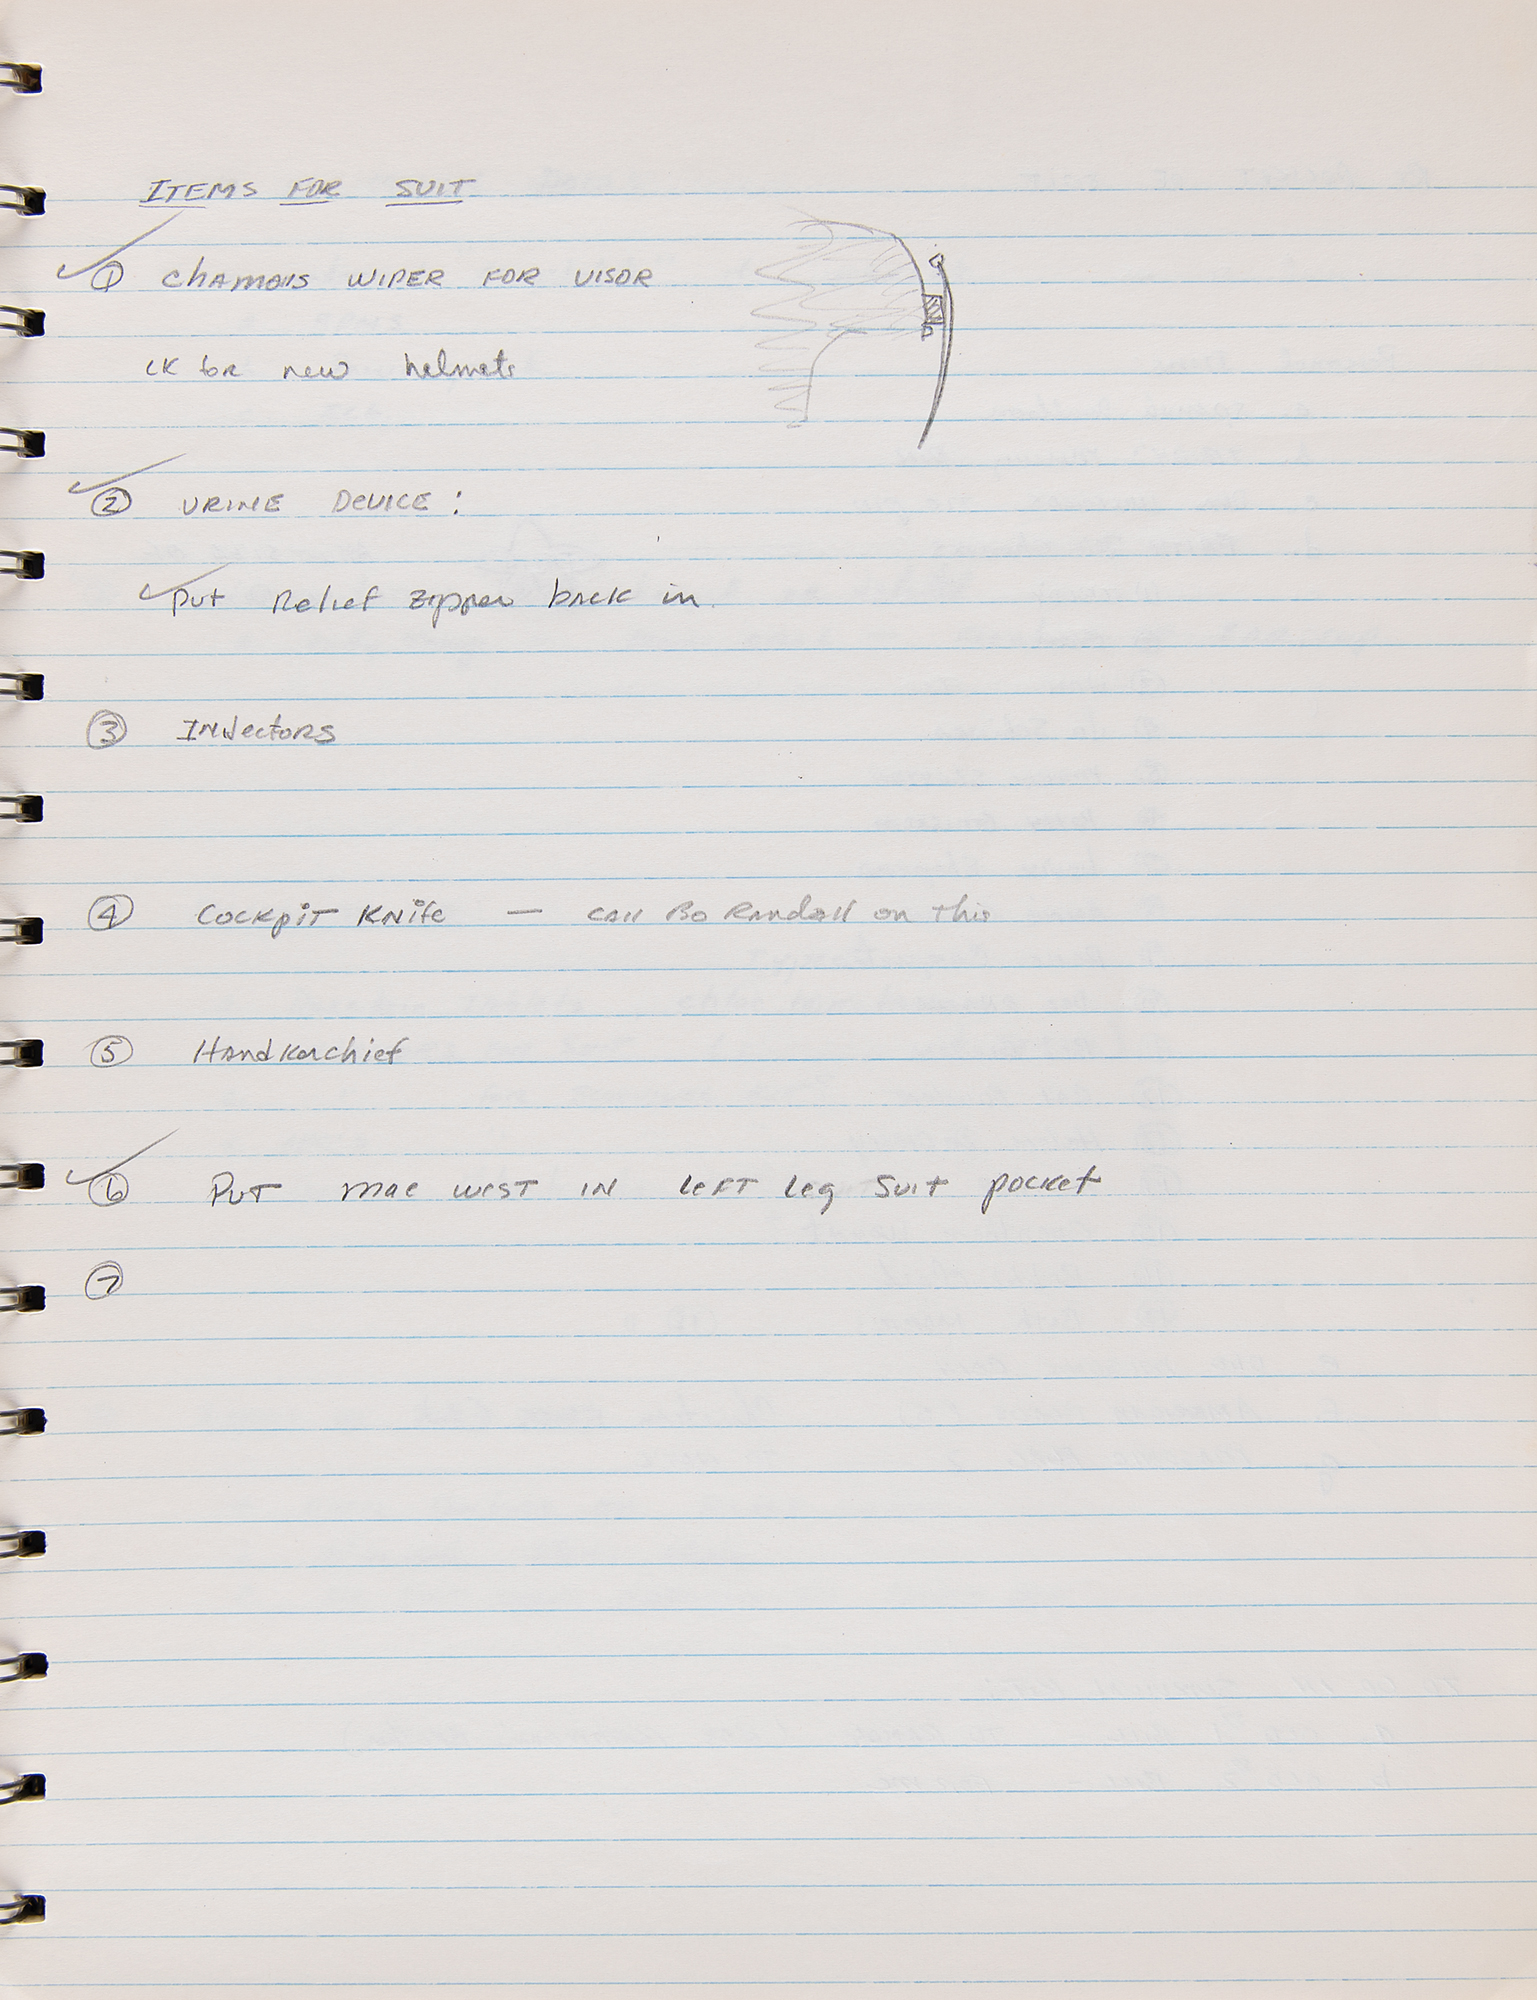 ITEMS FOR SUIT
① ChAMOIS WIPER FOR VISOR
CK for new helmets
② URINE DEVICE:
Put Relief zipper back in
③ INJectORS
④ COCKpIT KNife — CAll Bo Randall on this
⑤ HAndKerchief
⑥ PUT mae west IN LeFT Leg Suit pocket
⑦